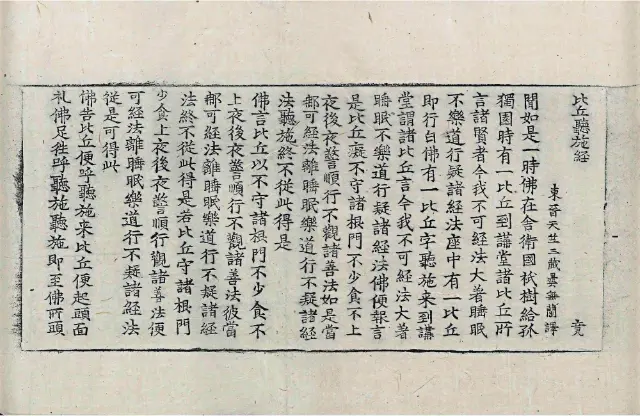 比丘聽施經
東晉天竺三藏曇無蘭譯 竟
聞如是一時佛在舍衛國祇樹給孤
獨園時有一比丘到講堂諸比丘所
言諸賢者令我不可經法大著睡眠
不樂道行疑諸經法座中有一比丘
即行白佛有一比丘字聽施来到講
堂謂諸比丘言令我不可經法大著
睡眠不樂道行疑諸經法佛便報言
是比丘癡不守諸根門不少食不上
夜後夜警順行不觀諸善法如是當
都可經法離睡眠樂道行不疑諸經
法聽施終不從此得是
佛言比丘以不守諸根門不少食不
上夜後夜警順行不觀諸善法彼當
都可經法離睡眠樂道行不疑諸經
法終不從此得是若比丘守諸根門
少食上夜後夜警順行觀諸善法便
可經法離睡眠樂道行不疑諸經法
從是可得此
佛告比丘便呼聽施来比丘便起頭面
礼佛足往呼聽施聽施即至佛所頭